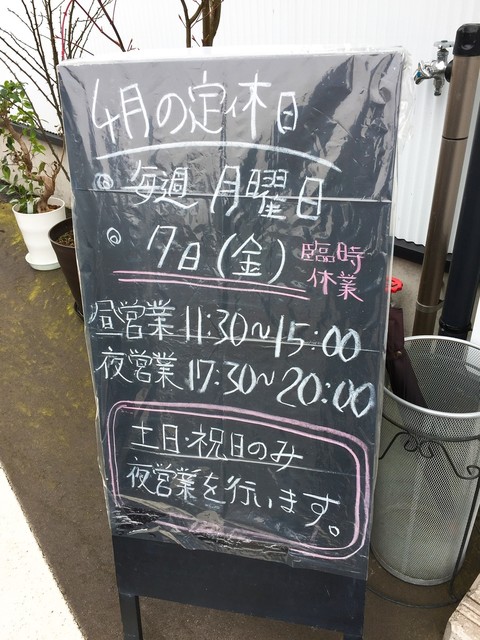 4月の定休日
◎ 毎週 月曜日
◎ 7日(金) 臨時休業
昼営業 11:30~15:00
夜営業 17:30~20:00
土日・祝日のみ
夜営業を行います。